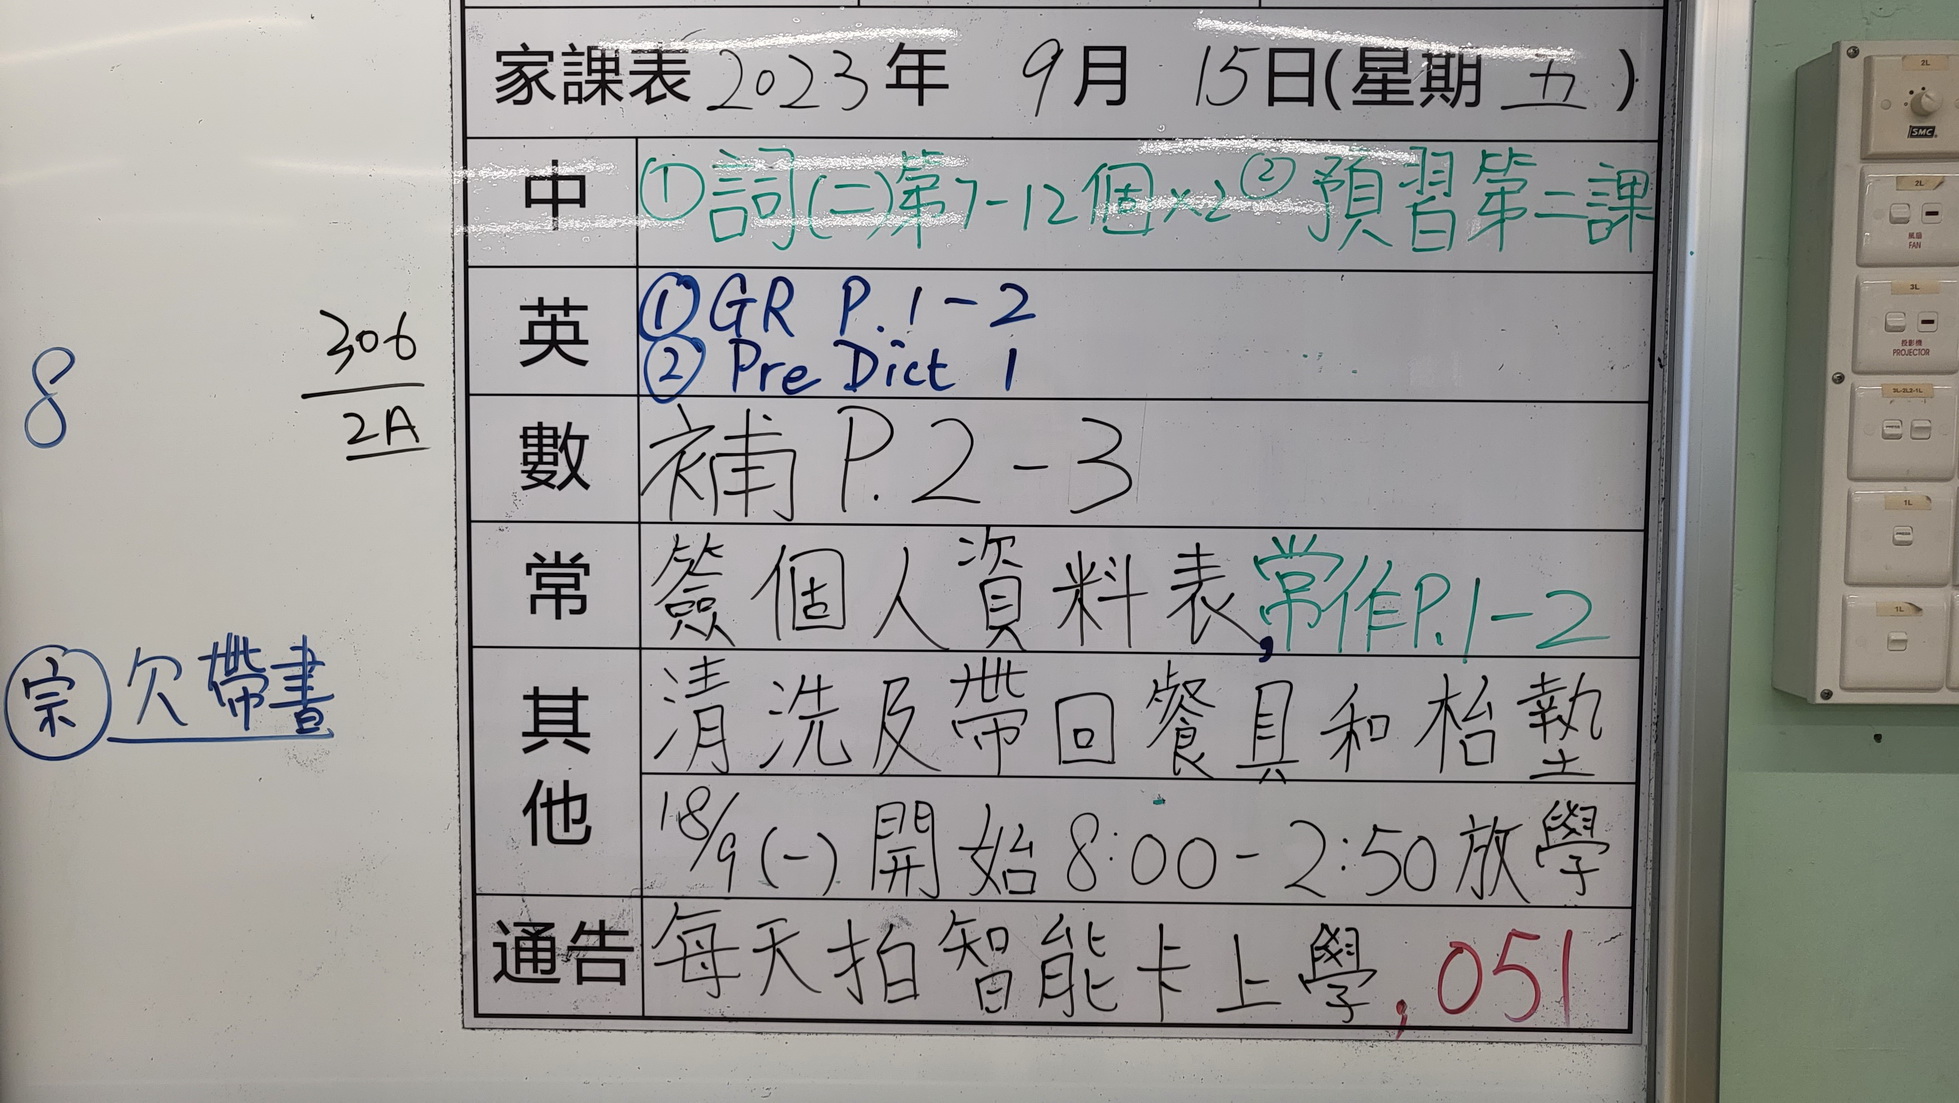 家課表 2023年 9月 15日(星期 五)
中 ①詞(二)第7-12個×2 ②預習第二課
英 ①GR P.1-2
②Pre Dict 1
數 補P.2-3
常 簽個人資料表,常作P.1-2
其他 清洗及帶回餐具和枱墊
18/9(一)開始8:00-2:50放學
通告 每天拍智能卡上學,051
8
306
2A
宗 欠帶書
2L
SMC
2L
風扇
FAN
3L
投影機
PROJECTOR
1L
1L